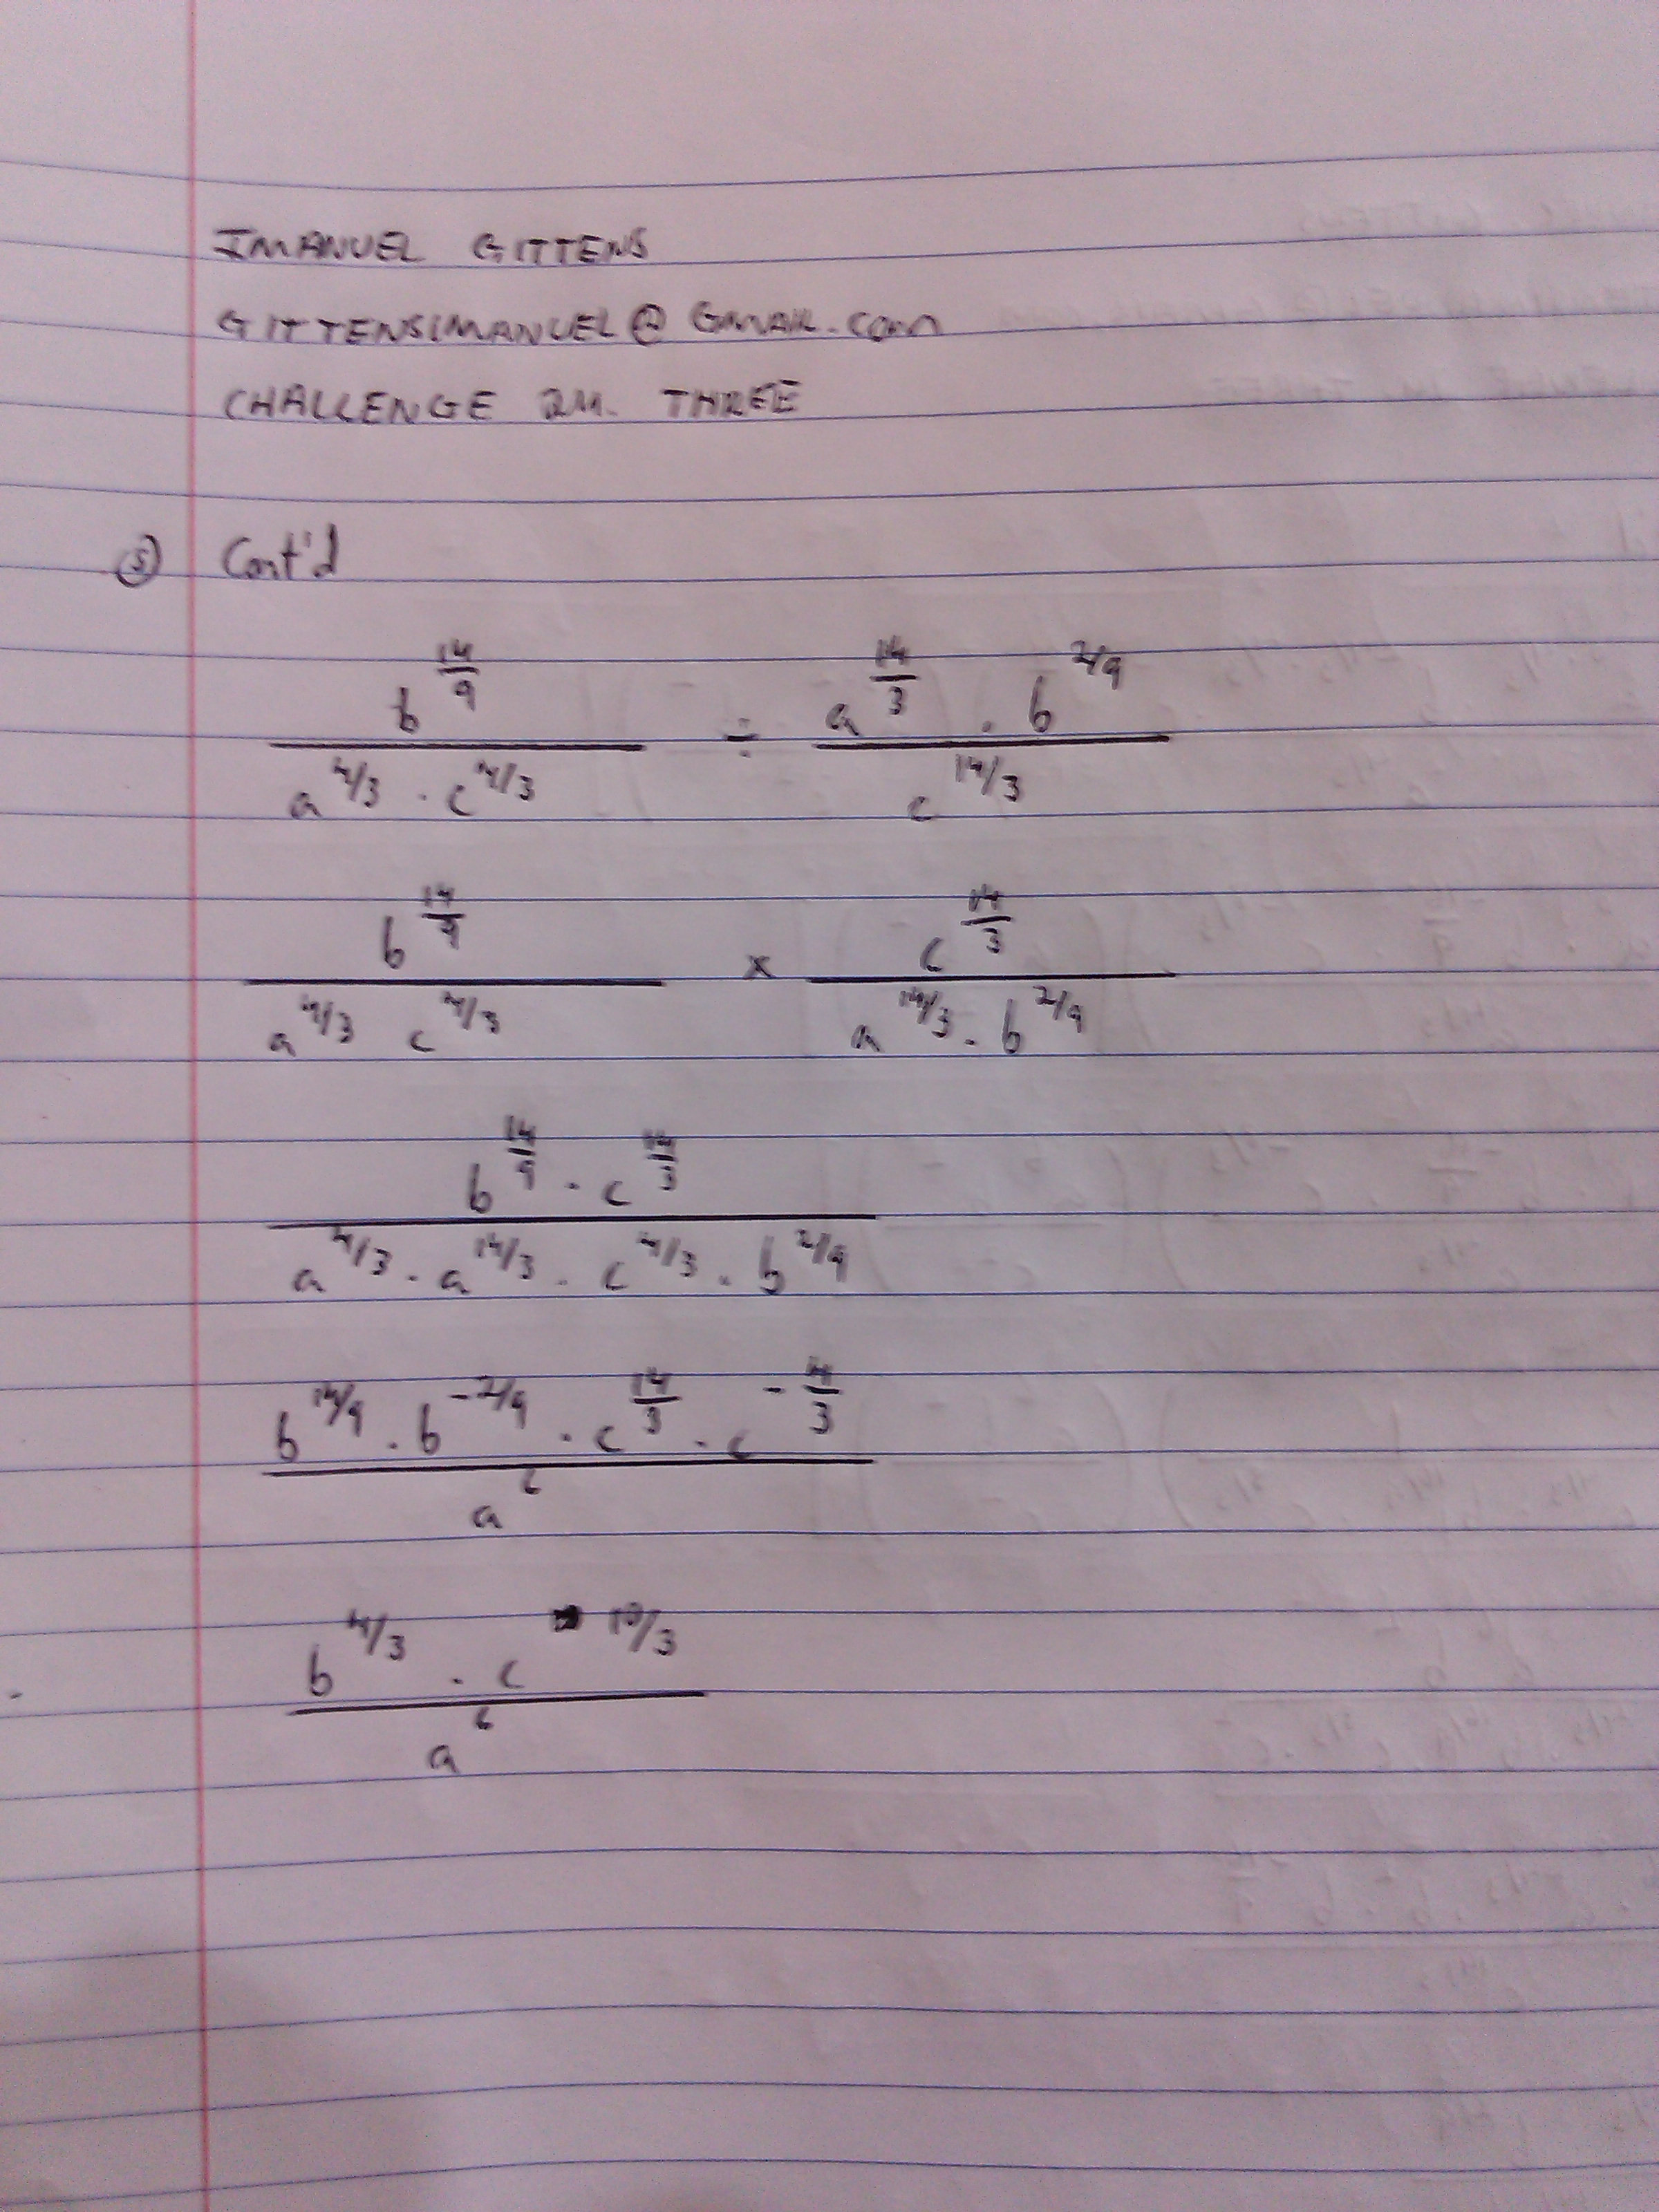 IMANUEL GITTENS
GITTENSIMANUEL@GMAIL.COM
CHALLENGE 2M. THREE
⑤ Cont'd
b^(14/9) / (a^(4/3) · c^(4/3)) ÷ (a^(14/3) · b^(2/9)) / c^(14/3)
b^(14/9) / (a^(4/3) c^(4/3)) × c^(14/3) / (a^(14/3) · b^(2/9))
(b^(14/9) · c^(14/3)) / (a^(4/3) · a^(14/3) · c^(4/3) · b^(2/9))
(b^(14/9) · b^(-2/9) · c^(14/3) · c^(-4/3)) / a^6
(b^(4/3) · c^(10/3)) / a^6